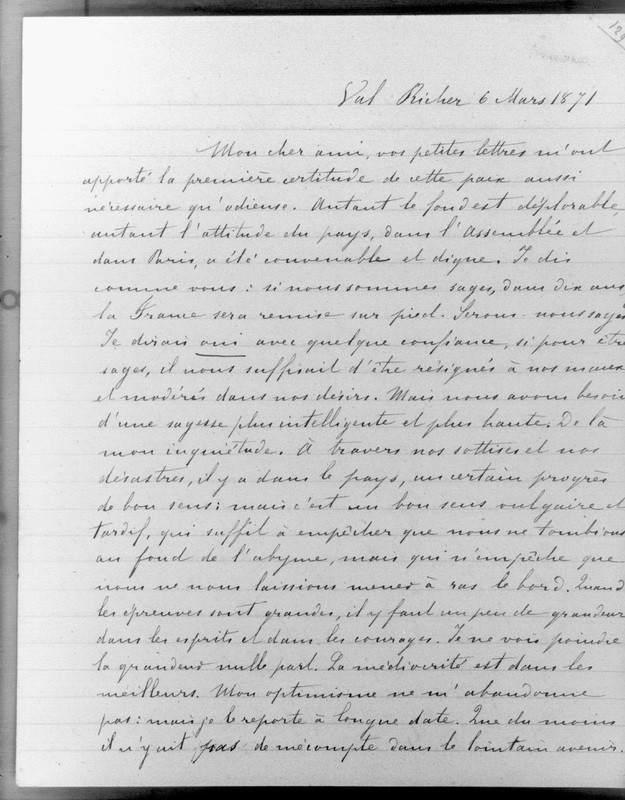 129
Val Richer 6 Mars 1871
Mon cher ami, vos petites lettres m'ont
apporté la première certitude de cette paix aussi
nécessaire qu'odieuse. Autant le fond est déplorable,
autant l'attitude du pays, dans l'Assemblée et
dans Paris, a été convenable et digne. Je dis
comme vous : si nous sommes sages, dans dix ans
la France sera remise sur pied. Serons-nous sages
Je dirais oui avec quelque confiance, si pour être
sages, il nous suffisait d'être résignés à nos maux
et modérés dans nos désirs. Mais nous avons besoin
d'une sagesse plus intelligente et plus haute. De là
mon inquiétude. À travers nos sottises et nos
désastres, il y a dans le pays, un certain progrès
de bon sens : mais c'est un bon sens vulgaire et
tardif, qui suffit à empêcher que nous ne tombions
au fond de l'abyme, mais qui n'empêche que
nous ne nous laissions mener à ras le bord. Quand
les épreuves sont grandes, il y faut un peu de grandeur
dans les esprits et dans les courages. Je ne vois poindre
la grandeur nulle part. La médiocrité est dans les
meilleurs. Mon optimisme ne m'abandonne
pas : mais je le reporte à longue date. Que du moins
il n'y ait pas de mécompte dans le lointain avenir.